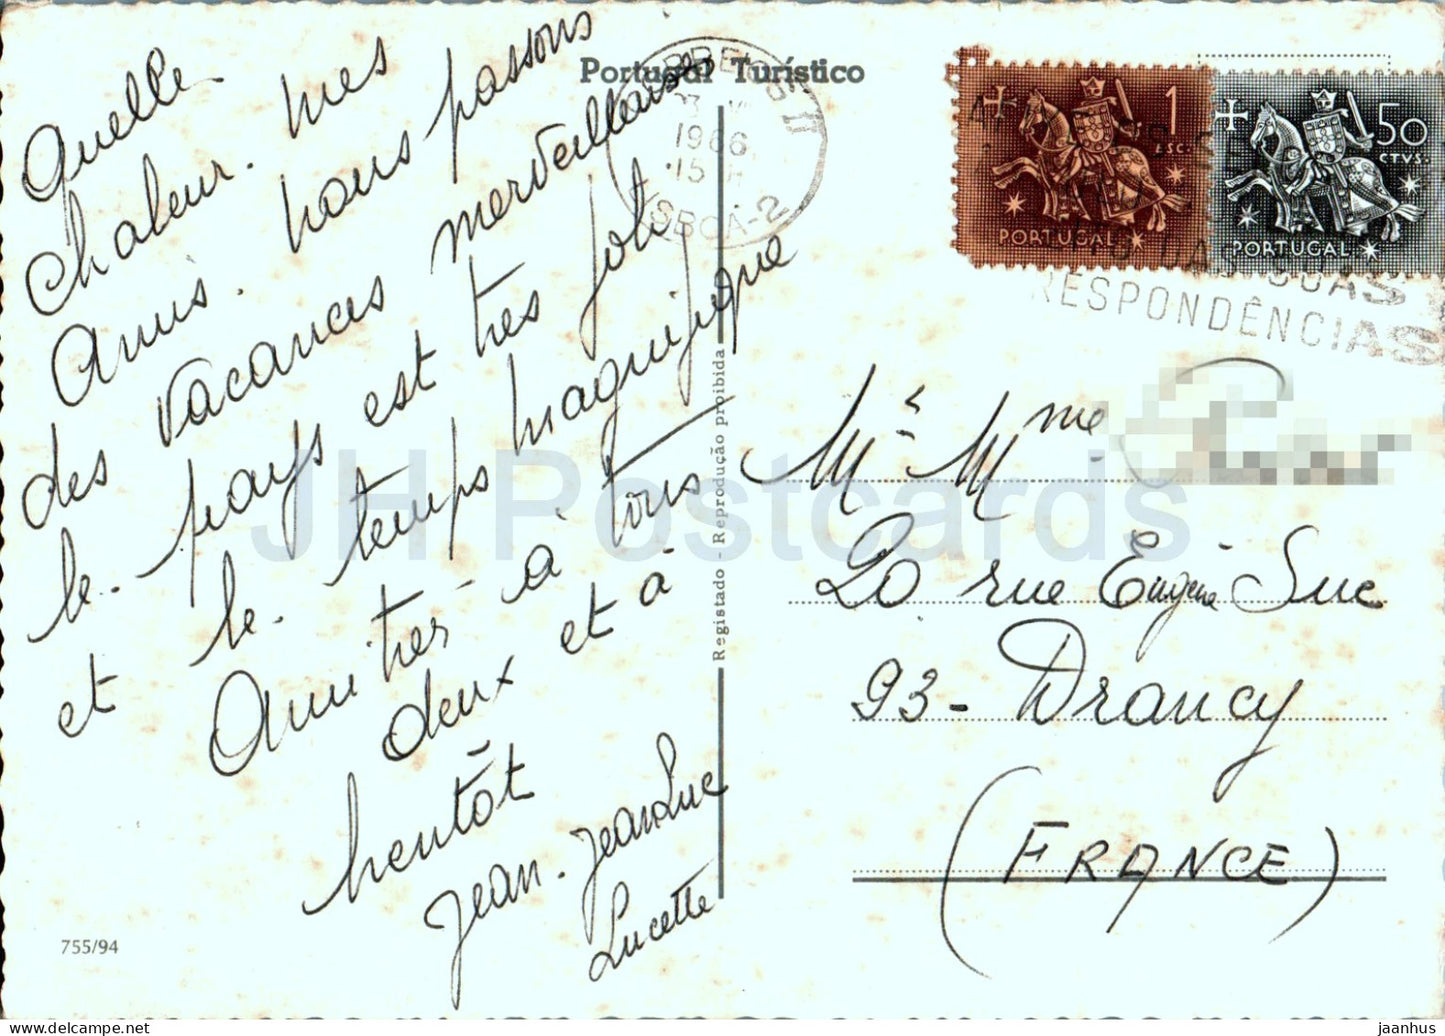 Quelle
Chaleur. mes
Amis. nous passons
des vacances merveilleuses
le. pays est très joli
et le. temps magnifique
Amitiés à tous
deux et à
bentôt
Jean. JeanLuc
Lucette
755/94
Portugal Turístico
1966
LISBOA-2
1
ESC.
PORTUGAL
50
CTVS.
PORTUGAL
RESPONDÊNCIAS
Registado - Reprodução proibida
Mr Mme
20 rue Eugène Sue
93 - Drancy
(FRANCE)
JH Postcards
jaanhus
www.delcampe.net